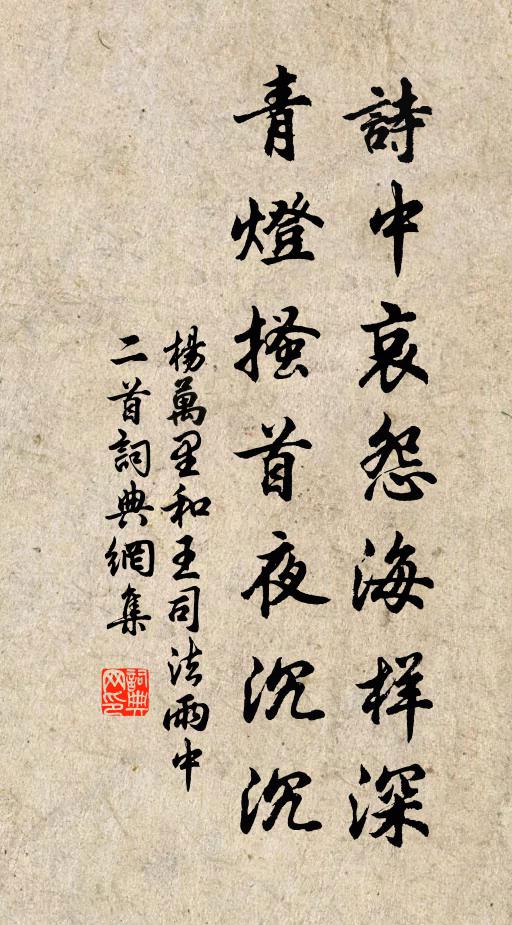 詩中哀怨海样深
青燈搔首夜沉沉
楊萬里和王司法雨中
二首詞典網集
詞典
网印